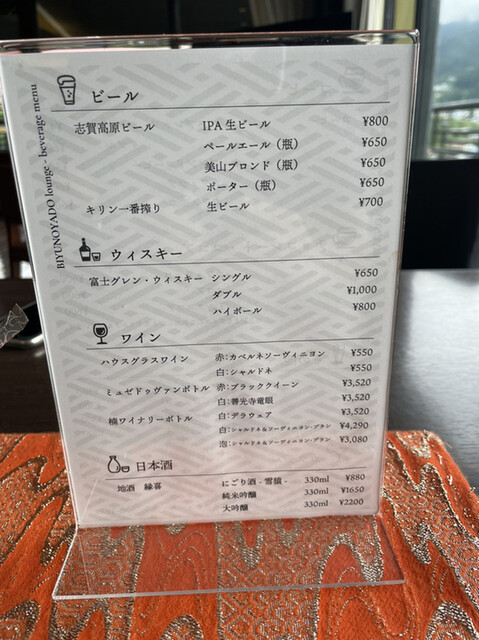 BIYUNOYADO lounge - beverage menu
ビール
志賀高原ビール IPA 生ビール ¥800
ペールエール（瓶） ¥650
美山ブロンド（瓶） ¥650
ポーター（瓶） ¥650
キリン一番搾り 生ビール ¥700
ウィスキー
富士グレン・ウィスキー シングル ¥650
ダブル ¥1,000
ハイボール ¥800
ワイン
ハウスグラスワイン 赤: カベルネソーヴィニヨン ¥550
白: シャルドネ ¥550
ミュゼドゥヴァンボトル 赤: ブラッククイーン ¥3,520
白: 善光寺竜眼 ¥3,520
楠ワイナリーボトル 白: デラウェア ¥3,520
白: シャルドネ&ソーヴィニヨン・ブラン ¥4,290
泡: シャルドネ&ソーヴィニヨン・ブラン ¥3,080
日本酒
地酒 縁喜 にごり酒 - 雪猿 - 330ml ¥880
純米吟醸 330ml ¥1650
大吟醸 330ml ¥2200